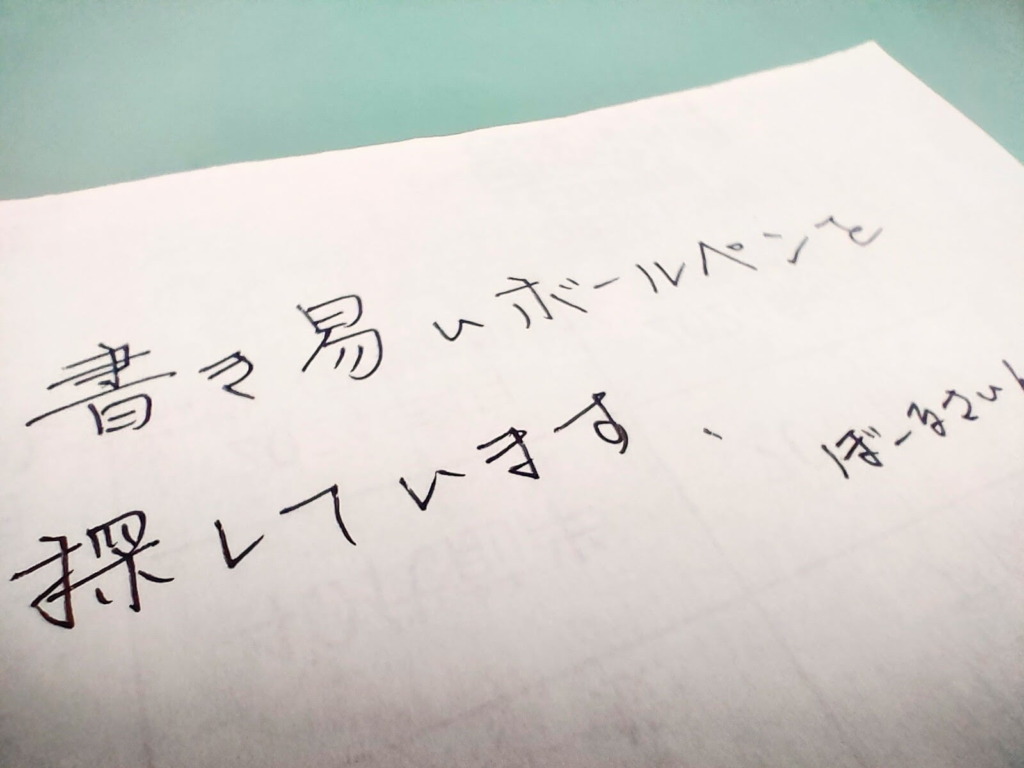 書き易いボールペンを
探しています、
ぼーるさい